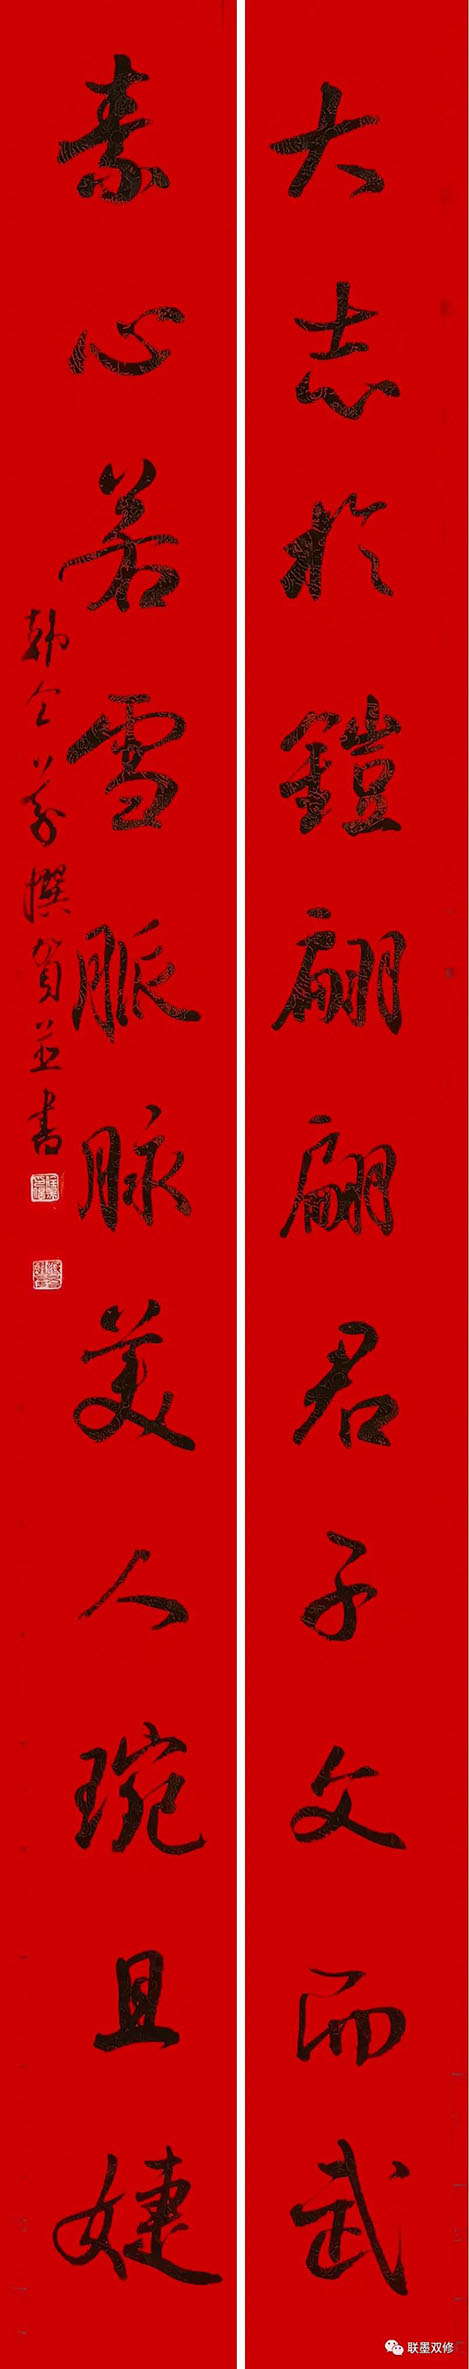 大志於鎧翩翩君子文而武
素心若雪脈脉美人琬且婕
撰賀並書
联墨双修